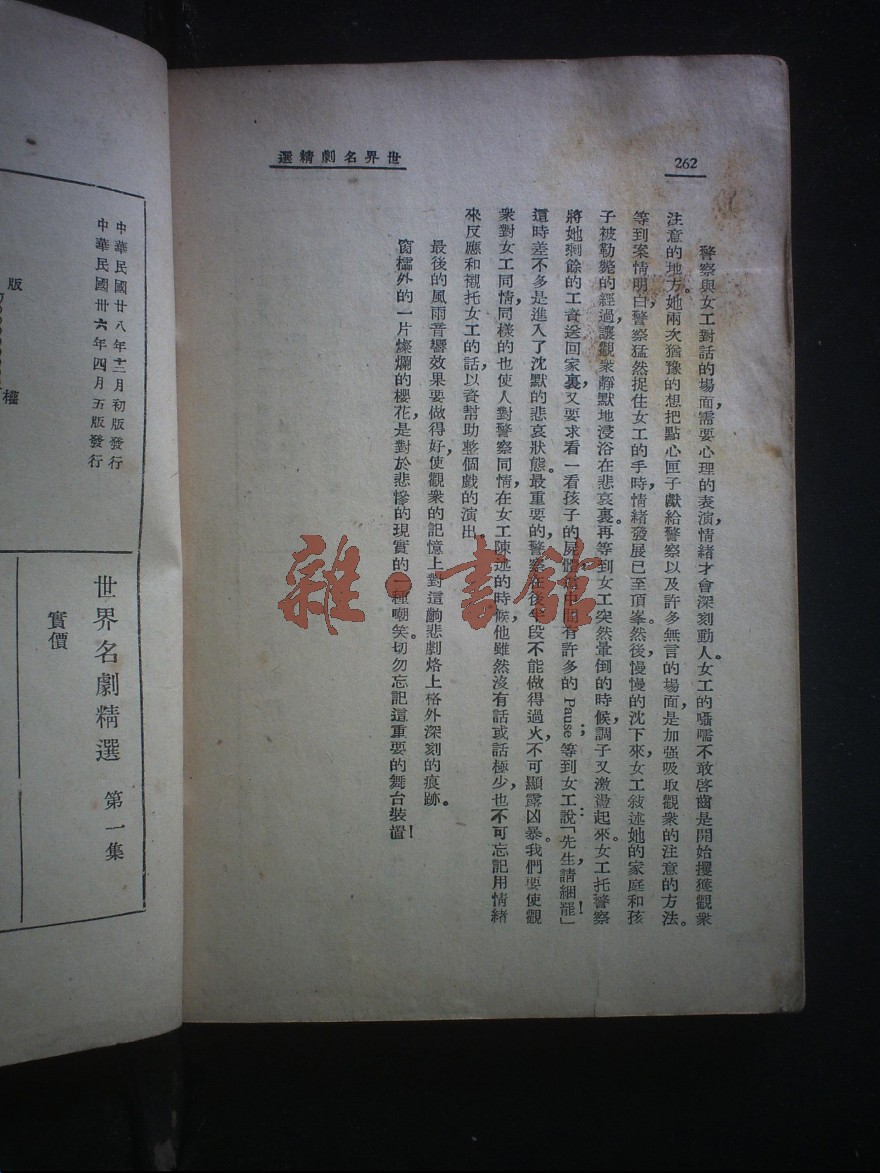 262
世界名劇精選
警察與女工對話的場面，需要心理的表演，情緒才會深刻動人。女工的囁嚅不敢啓齒是開始攫獲觀衆
注意的地方。她兩次猶豫的想把點心匣子獻給警察以及許多無言的場面，是加强吸取觀衆的注意的方法。
等到案情明白，警察猛然捉住女工的手時，情緒發展已至頂峯。然後，慢慢的沈下來，女工敍述她的家庭和孩
子被勒斃的經過，讓觀衆靜默地浸浴在悲哀裏。再等到女工突然暈倒的時候，調子又激盪起來。女工托警察
將她剩餘的工資送回家裏，又要求看一看孩子的屍體，這中間有許多的 Pause；等到女工說：「先生，請綑罷！」
這時差不多是進入了沈默的悲哀狀態。最重要的，警察在後半段不能做得過火，不可顯露凶暴。我們要使觀
衆對女工同情，同樣的也使人對警察同情，在女工陳述的時候，他雖然沒有話或話極少，也不可忘記用情緒
來反應和襯托女工的話，以資幫助整個戲的演出。
最後的風雨音響效果要做得好，使觀衆的記憶上對這齣悲劇烙上格外深刻的痕跡。
窗櫺外的一片燦爛的櫻花，是對於悲慘的現實的一種嘲笑。切勿忘記這重要的舞台裝置！
中華民國廿八年十二月初版發行
中華民國卅六年四月五版發行
版
權
世界名劇精選 第一集
實價
雜·書館